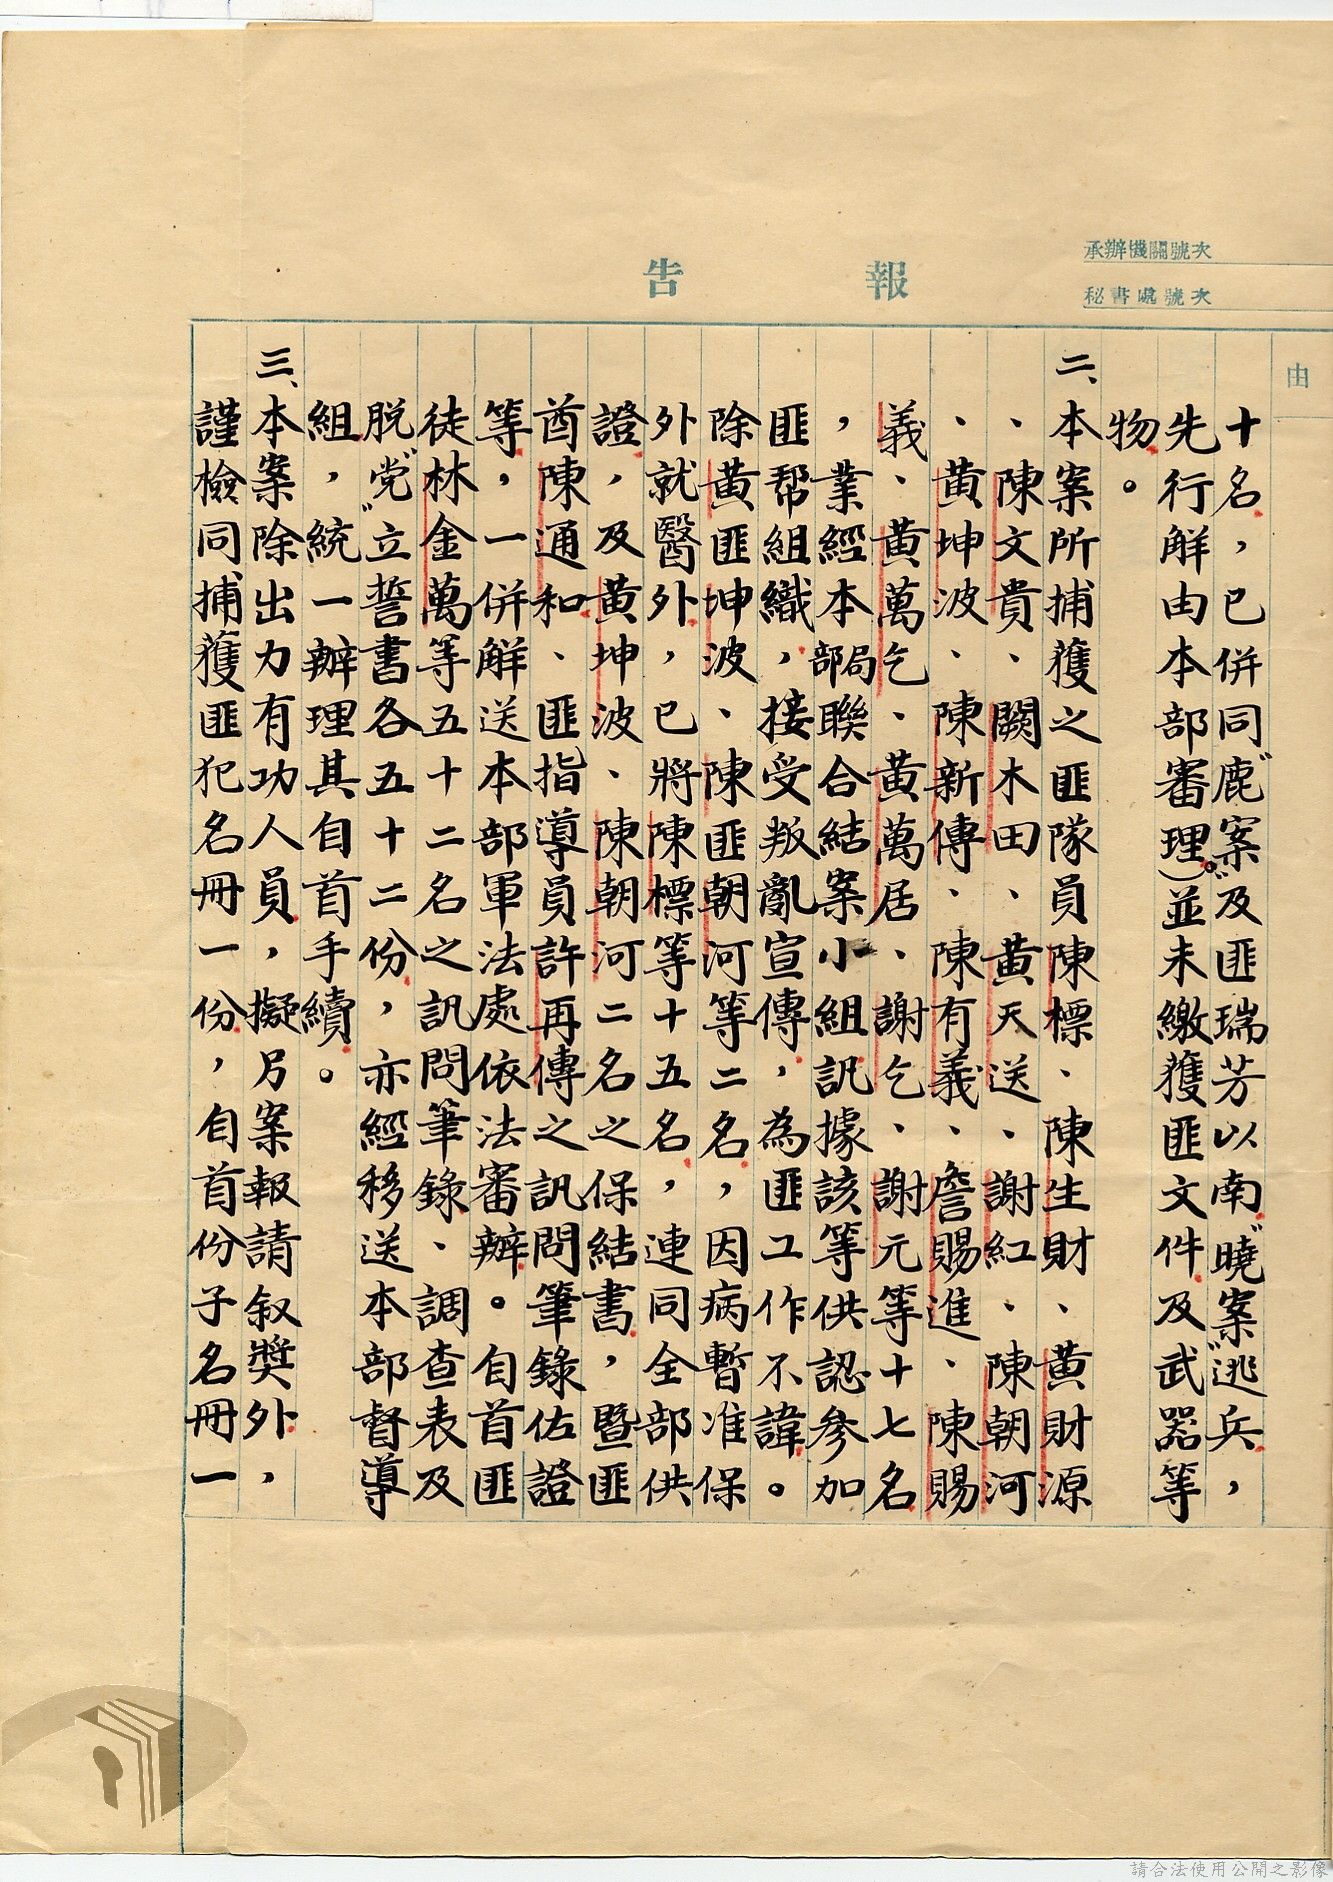 承辦機關號次
秘書處號次
報告
由
十名，已併同“鹿案”及匪瑞芳以南“曉案”逃兵，
先行解由本部審理）。並未繳獲匪文件及武器等
物。
二、本案所捕獲之匪隊員陳標、陳生財、黃財源
、陳文貴、闕木田、黃天送、謝紅、陳朝河
、黃坤波、陳新傳、陳有義、詹賜進、陳賜
義、黃萬乞、黃萬居、謝乞、謝元等十七名
，業經本部局聯合結案小組訊據該等供認參加
匪帮組織，接受叛亂宣傳，為匪工作不諱。
除黃匪坤波、陳匪朝河等二名，因病暫准保
外就醫外，已將陳標等十五名，連同全部供
證，及黃坤波、陳朝河二名之保結書，暨匪
酋陳通和、匪指導員許再傳之訊問筆錄佐證
等，一併解送本部軍法處依法審辦。自首匪
徒林金萬等五十二名之訊問筆錄、調查表及
脫“党”立誓書各五十二份，亦經移送本部督導
組，統一辦理其自首手續。
三、本案除出力有功人員，擬另案報請叙獎外，
謹檢同捕獲匪犯名冊一份，自首份子名冊一
請合法使用公開之影像